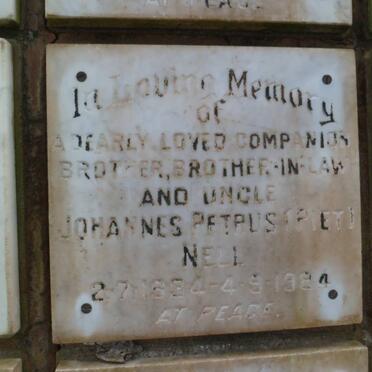 AT PEACE
In Loving Memory
of
A DEARLY LOVED COMPANION
BROTHER, BROTHER-IN-LAW
AND UNCLE
JOHANNES PETRUS (PIET)
NELL
2-7-1924-4-9-1984
AT PEACE.